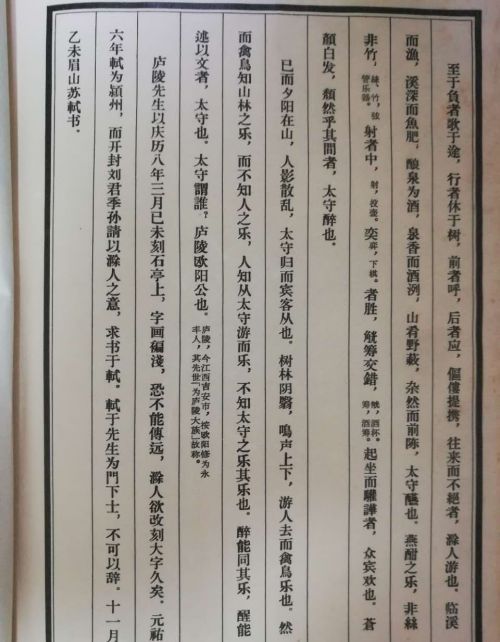 至于負者歌于途，行者休于树，前者呼，后者应，傴僂提携，往来而不絕者，滁人游也。临溪
而漁，溪深而魚肥，酿泉为酒，泉香而酒洌，山肴野蔌，杂然而前陈，太守醼也。燕酣之乐，非絲
非竹，絲、竹，弦管乐器。射者中，射，投壶。奕弈，下棋。者胜，觥筹交錯，觥，酒杯。筹，酒筹。起坐而讙譁者，众宾欢也。苍
顏白发，頹然乎其間者，太守醉也。
已而夕阳在山，人影散乱，太守归而宾客从也。树林阴翳，鳴声上下，游人去而禽鳥乐也。然
而禽鳥知山林之乐，而不知人之乐，人知从太守游而乐，不知太守之乐其乐也。醉能同其乐，醒能
述以文者，太守也。太守謂誰？庐陵欧阳公也。庐陵，今江西吉安市，按欧阳修为永丰人，其先世「为庐陵大族」故称。
庐陵先生以庆历八年三月己未刻石亭上，字画褊淺，恐不能傳远，滁人欲改刻大字久矣。元祐
六年軾为潁州，而开封刘君季孙請以滁人之意，求书于軾。軾于先生为門下士，不可以辞。十一月
乙未眉山苏軾书。